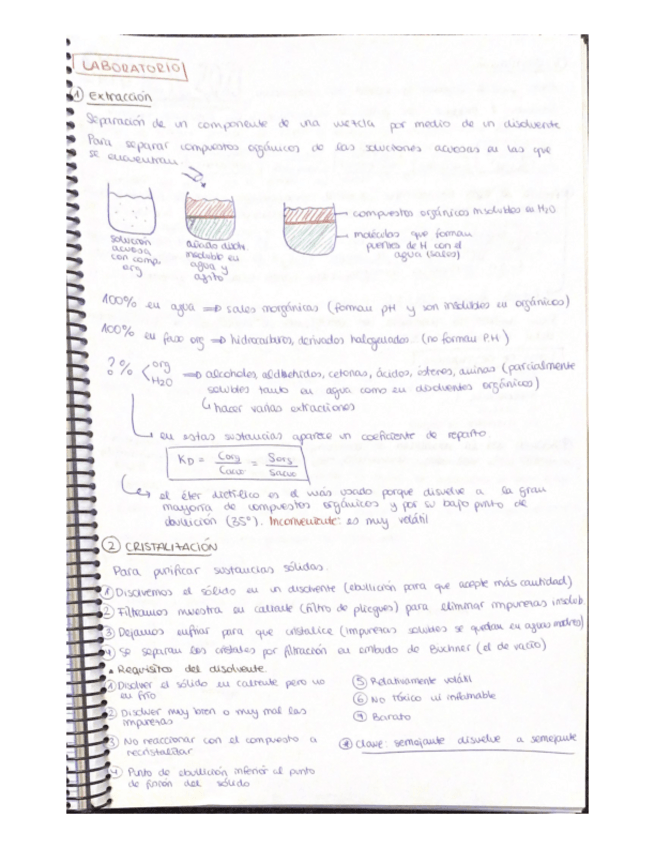 LABORATORIO
① Extracción
Separación de un componente de una mezcla por medio de un disolvente
Para separar compuestos orgánicos de las soluciones acuosas en las que
se encuentran
solución
acuosa
con comp.
org
añado disolv.
insoluble en
agua y
agito
compuestos orgánicos insolubles en H2O
moléculas que forman
puentes de H con el
agua (sales)
100% en agua ⇒ sales inorgánicas (forman pH y son insolubles en orgánicos)
100% en fase org ⇒ hidrocarburos, derivados halogenados (no forman P.H)
?% < org
H2O
⇒ alcoholes, aldehídos, cetonas, ácidos, ésteres, aminas (parcialmente
solubles tanto en agua como en disolventes orgánicos)
↳ hacer varias extracciones
↳ en estas sustancias aparece un coeficiente de reparto.
KD = Corg / Cacuo = Sorg / Sacuo
↳ el éter dietílico es el más usado porque disuelve a la gran
mayoría de compuestos orgánicos y por su bajo punto de
ebullición (35º). Inconveniente: es muy volátil
② CRISTALIZACIÓN
Para purificar sustancias sólidas.
① Disolvemos el sólido en un disolvente (ebullición para que acepte más cantidad)
② Filtramos muestra en caliente (filtro de pliegues) para eliminar impurezas insolub.
③ Dejamos enfriar para que cristalice (impurezas solubles se quedan en aguas madres)
④ Se separan los cristales por filtración en embudo de Buchner (el de vacío)
• Requisitos del disolvente.
① Disolver el sólido en caliente pero no
en frío
② Disolver muy bien o muy mal las
impurezas
③ No reaccionar con el compuesto a
recristalizar
④ Punto de ebullición inferior al punto
de fusión del sólido
⑤ Relativamente volátil
⑥ No tóxico ni inflamable
⑦ Barato
⑧ Clave: semejante disuelve a semejante